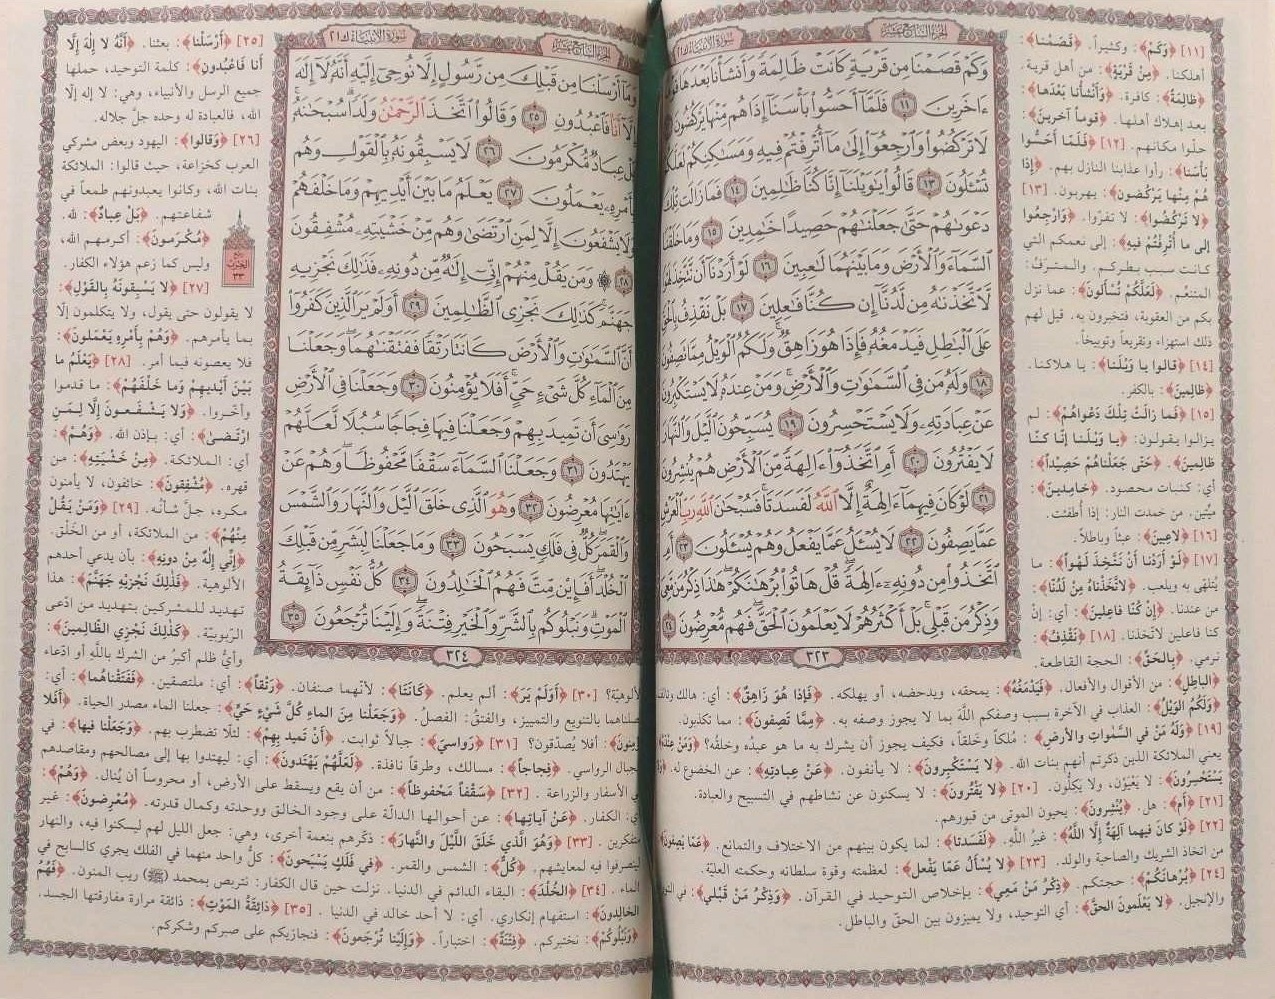 الجزء السابع عشر
سورة الأنبياء ٢١
وَكَمْ قَصَمْنَا مِن قَرْيَةٍ كَانَتْ ظَالِمَةً وَأَنشَأْنَا بَعْدَهَا قَوْمًا
ءَاخَرِينَ ١١ فَلَمَّآ أَحَسُّوا۟ بَأْسَنَآ إِذَا هُم مِّنْهَا يَرْكُضُونَ
لَا تَرْكُضُوا۟ وَٱرْجِعُوٓا۟ إِلَىٰ مَآ أُتْرِفْتُمْ فِيهِ وَمَسَٰكِنِكُمْ لَعَلَّكُمْ
تُسْـَٔلُونَ ١٣ قَالُوا۟ يَٰوَيْلَنَآ إِنَّا كُنَّا ظَٰلِمِينَ ١٤ فَمَا زَالَت تِّلْكَ
دَعْوَىٰهُمْ حَتَّىٰ جَعَلْنَٰهُمْ حَصِيدًا خَٰمِدِينَ ١٥ وَمَا خَلَقْنَا
ٱلسَّمَآءَ وَٱلْأَرْضَ وَمَا بَيْنَهُمَا لَٰعِبِينَ ١٦ لَوْ أَرَدْنَآ أَن نَّتَّخِذَ لَهْوًا
لَّٱتَّخَذْنَٰهُ مِن لَّدُنَّآ إِن كُنَّا فَٰعِلِينَ ١٧ بَلْ نَقْذِفُ بِٱلْحَقِّ
عَلَى ٱلْبَٰطِلِ فَيَدْمَغُهُۥ فَإِذَا هُوَ زَاهِقٌ وَلَكُمُ ٱلْوَيْلُ مِمَّا تَصِفُونَ
١٨ وَلَهُۥ مَن فِى ٱلسَّمَٰوَٰتِ وَٱلْأَرْضِ وَمَنْ عِندَهُۥ لَا يَسْتَكْبِرُونَ
عَنْ عِبَادَتِهِۦ وَلَا يَسْتَحْسِرُونَ ١٩ يُسَبِّحُونَ ٱلَّيْلَ وَٱلنَّهَارَ
لَا يَفْتُرُونَ ٢٠ أَمِ ٱتَّخَذُوٓا۟ ءَالِهَةً مِّنَ ٱلْأَرْضِ هُمْ يُنشِرُونَ
٢١ لَوْ كَانَ فِيهِمَآ ءَالِهَةٌ إِلَّا ٱللَّهُ لَفَسَدَتَا فَسُبْحَٰنَ ٱللَّهِ رَبِّ ٱلْعَرْشِ
عَمَّا يَصِفُونَ ٢٢ لَا يُسْـَٔلُ عَمَّا يَفْعَلُ وَهُمْ يُسْـَٔلُونَ ٢٣ أَمِ
ٱتَّخَذُوا۟ مِن دُونِهِۦٓ ءَالِهَةً قُلْ هَاتُوا۟ بُرْهَٰنَكُمْ هَٰذَا ذِكْرُ مَن مَّعِىَ
وَذِكْرُ مَن قَبْلِى بَلْ أَكْثَرُهُمْ لَا يَعْلَمُونَ ٱلْحَقَّ فَهُم مُّعْرِضُونَ ٢٤
٣٢٣
[١١] ﴿وَكَمْ﴾: وكثيراً. ﴿قَصَمْنَا﴾:
أهلكنا. ﴿مِنْ قَرْيَةٍ﴾: من أهل قرية.
﴿ظَالِمَةً﴾: كافرة. ﴿وَأَنْشَأْنا بَعْدَها﴾:
بعد إهلاك أهلها. ﴿قوماً آخرينَ﴾:
حلّوا مكانهم. [١٢] ﴿فَلَمَّا أَحَسُّوا
بَأْسَنا﴾: رأوا عذابنا النازل بهم. ﴿إذا
هُمْ مِنْها يَرْكُضون﴾: يهربون. [١٣]
﴿لا تَرْكُضُوا﴾: لا تفرّوا. ﴿وَارْجِعُوا
إلى ما أُتْرِفْتُمْ فيهِ﴾: إلى نعمكم التي
كانت سبب بطركم. والمترفُ:
المتنعّم. ﴿لَعَلَّكُمْ تُسألونَ﴾: عما نزل
بكم من العقوبة، فتخبرون به. قيل لهم
ذلك استهزاء وتقريعاً وتوبيخاً.
[١٤] ﴿قالوا يا وَيْلَنا﴾: يا هلاكنا.
﴿ظالِمينَ﴾: بالكفر.
[١٥] ﴿فَما زالَتْ تِلْكَ دَعْواهُمْ﴾: لم
يزالوا يقولون: ﴿يا وَيْلَنا إنّا كنّا
ظالمينَ﴾. ﴿حَتى جَعَلْناهُمْ حَصيداً﴾:
أي: كنبات محصود. ﴿خامِدينَ﴾:
ميّتين. من خمدت النار: إذا أطفئت.
[١٦] ﴿لاعِبينَ﴾: عبثاً وباطلاً.
[١٧] ﴿لَوْ أَرَدْنا أَنْ نَتَّخِذَ لَهْواً﴾: ما
يُتلهى به ويلعب. ﴿لاتَّخَذْناهُ مِنْ لَدُنّا﴾:
من عندنا. ﴿إنْ كُنّا فاعِلينَ﴾: أي: إنْ
كنا فاعلين لاتّخذنا. [١٨] ﴿نَقْذِفُ﴾:
نرمي. ﴿بِالحَقِّ﴾: الحجة القاطعة.
﴿الباطِلِ﴾: من الأقوال والأفعال. ﴿فَيَدْمَغُهُ﴾: يمحقه، ويدحضه، أو يهلكه. ﴿فَإذا هُوَ زاهِقٌ﴾: أي: هالك
﴿وَلَكُمُ الوَيْلُ﴾: العذاب في الآخرة بسبب وصفكم اللَّهَ بما لا يجوز وصفه به. ﴿مِمَّا تَصِفُونَ﴾: مما تكذبون.
[١٩] ﴿وَلَهُ مَنْ في السَّمٰواتِ والأَرْضِ﴾: مُلكاً وخَلقاً، فكيف يجوز أن يشرك به ما هو عبدُه وخلقُه؟ ﴿وَمَنْ عِنْدَهُ﴾
يعني الملائكة الذين ذكرتم أنهم بنات الله. ﴿لا يَسْتَكْبِرونَ﴾: لا يأنفون. ﴿عَنْ عِبادَتِهِ﴾: عن الخضوع له.
يَسْتَحْسِرُونَ﴾: لا يَعْيَوْن، ولا يكلُّون. [٢٠] ﴿لا يَفْتُرونَ﴾: لا يسكنون عن نشاطهم في التسبيح والعبادة.
[٢١] ﴿أَمِ﴾: هل. ﴿يُنْشِرونَ﴾: يحيون الموتى من قبورهم.
[٢٢] ﴿لَوْ كانَ فيهِما آلِهَةٌ إلَّا اللَّهُ﴾: غيرُ اللَّهِ. ﴿لَفَسَدَتا﴾: لما يكون بينهم من الاختلاف والتمانع. ﴿عَمّا يَصِفونَ﴾
من اتخاذ الشريك والصاحبة والولد. [٢٣] ﴿لا يُسْأَلُ عَمّا يَفْعل﴾: لعظمته وقوة سلطانه وحكمته العليّة.
[٢٤] ﴿بُرْهانَكُمْ﴾: حجتكم. ﴿ذِكْرُ مَنْ مَعِيَ﴾: بإخلاص التوحيد في القرآن. ﴿وَذِكْرُ مَنْ قَبْلي﴾: في
والإنجيل. ﴿لا يَعْلَمونَ الحقَّ﴾: أي التوحيد، ولا يميزون بين الحق والباطل.
الجزء السابع عشر
سورة الأنبياء ٢١
وَمَآ أَرْسَلْنَا مِن قَبْلِكَ مِن رَّسُولٍ إِلَّا نُوحِىٓ إِلَيْهِ أَنَّهُۥ لَآ إِلَٰهَ
إِلَّآ أَنَا۠ فَٱعْبُدُونِ ٢٥ وَقَالُوا۟ ٱتَّخَذَ ٱلرَّحْمَٰنُ وَلَدًا سُبْحَٰنَهُۥ
بَلْ عِبَادٌ مُّكْرَمُونَ ٢٦ لَا يَسْبِقُونَهُۥ بِٱلْقَوْلِ وَهُم
بِأَمْرِهِۦ يَعْمَلُونَ ٢٧ يَعْلَمُ مَا بَيْنَ أَيْدِيهِمْ وَمَا خَلْفَهُمْ
وَلَا يَشْفَعُونَ إِلَّا لِمَنِ ٱرْتَضَىٰ وَهُم مِّنْ خَشْيَتِهِۦ مُشْفِقُونَ
٢٨ ۞ وَمَن يَقُلْ مِنْهُمْ إِنِّىٓ إِلَٰهٌ مِّن دُونِهِۦ فَذَٰلِكَ نَجْزِيهِ
جَهَنَّمَ كَذَٰلِكَ نَجْزِى ٱلظَّٰلِمِينَ ٢٩ أَوَلَمْ يَرَ ٱلَّذِينَ كَفَرُوٓا۟
أَنَّ ٱلسَّمَٰوَٰتِ وَٱلْأَرْضَ كَانَتَا رَتْقًا فَفَتَقْنَٰهُمَا وَجَعَلْنَا
مِنَ ٱلْمَآءِ كُلَّ شَىْءٍ حَىٍّ أَفَلَا يُؤْمِنُونَ ٣٠ وَجَعَلْنَا فِى ٱلْأَرْضِ
رَوَٰسِىَ أَن تَمِيدَ بِهِمْ وَجَعَلْنَا فِيهَا فِجَاجًا سُبُلًا لَّعَلَّهُمْ
يَهْتَدُونَ ٣١ وَجَعَلْنَا ٱلسَّمَآءَ سَقْفًا مَّحْفُوظًا وَهُمْ عَنْ
ءَايَٰتِهَا مُعْرِضُونَ ٣٢ وَهُوَ ٱلَّذِى خَلَقَ ٱلَّيْلَ وَٱلنَّهَارَ وَٱلشَّمْسَ
وَٱلْقَمَرَ كُلٌّ فِى فَلَكٍ يَسْبَحُونَ ٣٣ وَمَا جَعَلْنَا لِبَشَرٍ مِّن قَبْلِكَ
ٱلْخُلْدَ أَفَإِي۟ن مِّتَّ فَهُمُ ٱلْخَٰلِدُونَ ٣٤ كُلُّ نَفْسٍ ذَآئِقَةُ
ٱلْمَوْتِ وَنَبْلُوكُم بِٱلشَّرِّ وَٱلْخَيْرِ فِتْنَةً وَإِلَيْنَا تُرْجَعُونَ ٣٥
٣٢٤
[٢٥] ﴿أَرْسَلْنا﴾: بعثنا. ﴿أَنَّهُ لا إلٰهَ إلّا
أنا فَاعْبُدُونِ﴾: كلمة التوحيد، حملها
جميع الرسل والأنبياء، وهي: لا إله إلا
الله، فالعبادة له وحده جلّ جلاله.
[٢٦] ﴿وَقَالُوا﴾: اليهود وبعض مشركي
العرب كخزاعة، حيث قالوا: الملائكة
بنات الله، وكانوا يعبدونهم طمعاً في
شفاعتهم. ﴿بَلْ عِبادٌ﴾: لله.
﴿مُكْرَمونَ﴾: أكرمهم الله،
وليس كما زعم هؤلاء الكفار.
ربع الحزب ٣٣
[٢٧] ﴿لا يَسْبِقونَهُ بِالقَوْلِ﴾:
لا يقولون حتى يقول، ولا يتكلمون إلّا
بما يأمرهم. ﴿وَهُمْ بِأَمْرِهِ يَعْمَلونَ﴾:
فلا يعصونه فيما أمر. [٢٨] ﴿يَعْلَمُ ما
بَيْنَ أَيْديهِمْ وَما خَلْفَهُمْ﴾: ما قدموا
وأخّروا. ﴿وَلا يَشْفَعونَ إلّا لِمَنِ
ارْتَضى﴾: أي: بإذن الله. ﴿وَهُمْ﴾:
أي: الملائكة. ﴿مِنْ خَشْيَتِهِ﴾: من
قهره. ﴿مُشْفِقونَ﴾: خائفون، لا يأمنون
مكره، جلّ شأنُه. [٢٩] ﴿وَمَنْ يَقُلْ
مِنْهُمْ﴾: من الملائكة، أو من الخَلْق.
﴿إنّي إلٰهٌ مِنْ دونِهِ﴾: بأن يدعي أحدهم
الألوهية. ﴿فَذٰلِكَ نَجْزيهِ جَهَنَّمَ﴾: هذا
تهديد للمشركين بتهديد من ادّعى
الرّبوبيّة. ﴿كَذٰلِكَ نَجْزي الظّالِمينَ﴾:
وأيُّ ظلم أكبرُ من الشرك باللَّهِ أو ادّعاء
الألوهيّة؟ [٣٠] ﴿أَوَلَمْ يَرَ﴾: ألم يعلم. ﴿كانَتا﴾: لأنهما صنفان. ﴿رَتْقاً﴾: أي: ملتصقين. ﴿فَفَتَقْناهُما﴾: أي:
فصلناهما بالتنويع والتمييز، والفتقُ: الفصلُ. ﴿وَجَعَلْنا مِنَ الماءِ كُلَّ شَيْءٍ حَيٍّ﴾: جعلنا الماء مصدر الحياة. ﴿أَفَلا
يُؤْمِنونَ﴾: أفلا يُصدّقون؟ [٣١] ﴿رَواسِيَ﴾: جبالاً ثوابت. ﴿أَنْ تَميد بِهِمْ﴾: لئلّا تضطرب بهم. ﴿وَجَعَلْنا فيها﴾: في
الجبال الرواسي. ﴿فِجاجاً﴾: مسالك، وطرقاً نافذة. ﴿لَعَلَّهُمْ يَهْتَدونَ﴾: أي: ليهتدوا بها إلى مصالحهم ومقاصدهم
في الأسفار والزراعة. [٣٢] ﴿سَقْفاً مَحْفوظاً﴾: من أن يقع ويسقط على الأرض، أو محروساً أن يُنال. ﴿وَهُمْ﴾:
أي: الكفار. ﴿عَنْ آياتِها﴾: عن أحوالها الدالّة على وجود الخالق ووحدته وكمال قدرته. ﴿مُعْرِضونَ﴾: غير
متفكرين. [٣٣] ﴿وَهُوَ الَّذي خَلَقَ اللَّيْلَ والنَّهارَ﴾: ذكّرهم بنعمة أخرى، وهي: جعل الليل لهم ليسكنوا فيه، والنهار
ليتصرفوا فيه لمعايشهم. ﴿كُلٌّ﴾: الشمس والقمر. ﴿في فَلَكٍ يَسْبَحونَ﴾: كلُّ واحد منهما في الفلك يجري كالسابح في
الماء. [٣٤] ﴿الخُلْدَ﴾: البقاء الدائم في الدنيا. نزلت حين قال الكفار: نتربص بمحمد (ﷺ) ريب المنون. ﴿فَهُمُ
الخالِدونَ﴾: استفهام إنكاري. أي: لا أحد خالد في الدنيا. [٣٥] ﴿ذائِقَةُ المَوْتِ﴾: ذائقة مرارة مفارقتها الجسد.
﴿وَنَبْلُوكُمْ﴾: نختبركم. ﴿فِتْنَةً﴾: اختباراً. ﴿وَإلَيْنا تُرْجَعونَ﴾: فنجازيكم على صبركم وشكركم.